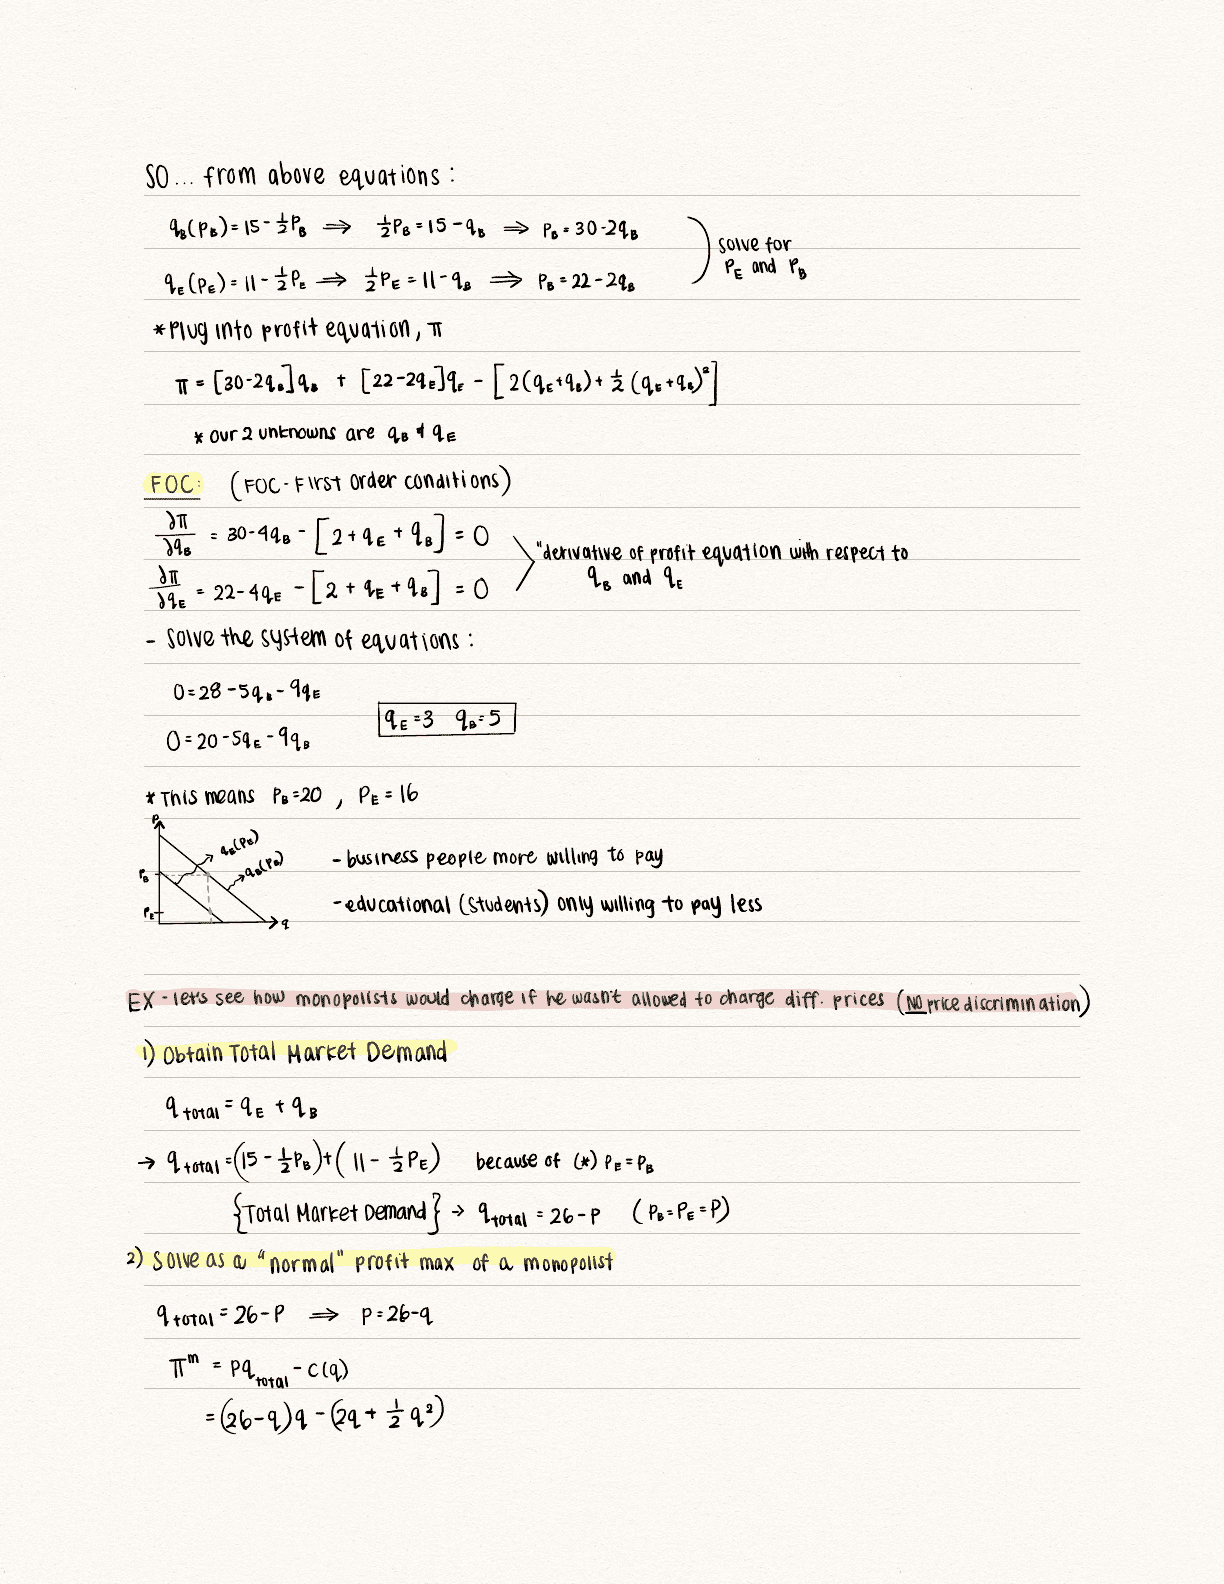 SO... from above equations:
q_B(P_B) = 15 - ½P_B ⇒ ½P_B = 15 - q_B ⇒ P_B = 30 - 2q_B
solve for
P_E and P_B
q_E(P_E) = 11 - ½P_E ⇒ ½P_E = 11 - q_B ⇒ P_B = 22 - 2q_B
*Plug into profit equation, π
π = [30-2q_B]q_B + [22-2q_E]q_E - [2(q_E+q_B) + ½(q_E+q_B)²]
* our 2 unknowns are q_B & q_E
FOC: (FOC - First Order conditions)
∂π/∂q_B = 30-4q_B - [2 + q_E + q_B] = 0
"derivative of profit equation with respect to
q_B and q_E
∂π/∂q_E = 22-4q_E - [2 + q_E + q_B] = 0
- Solve the system of equations:
0 = 28 - 5q_B - 9q_E
q_E = 3 q_B = 5
0 = 20 - 5q_E - 9q_B
* This means P_B = 20 , P_E = 16
P
q_E(P_E)
q_B(P_B)
P_B
P_E
q
- business people more willing to pay
- educational (students) only willing to pay less
EX - let's see how monopolists would charge if he wasn't allowed to charge diff. prices (NO price discrimination)
1) Obtain Total Market Demand
q_total = q_E + q_B
→ q_total = (15 - ½P_B) + (11 - ½P_E) because of (*) P_E = P_B
{Total Market Demand} → q_total = 26 - P (P_B = P_E = P)
2) Solve as a "normal" profit max of a monopolist
q_total = 26 - P ⇒ P = 26 - q
π^m = Pq_total - C(q)
= (26-q)q - (2q + ½q²)